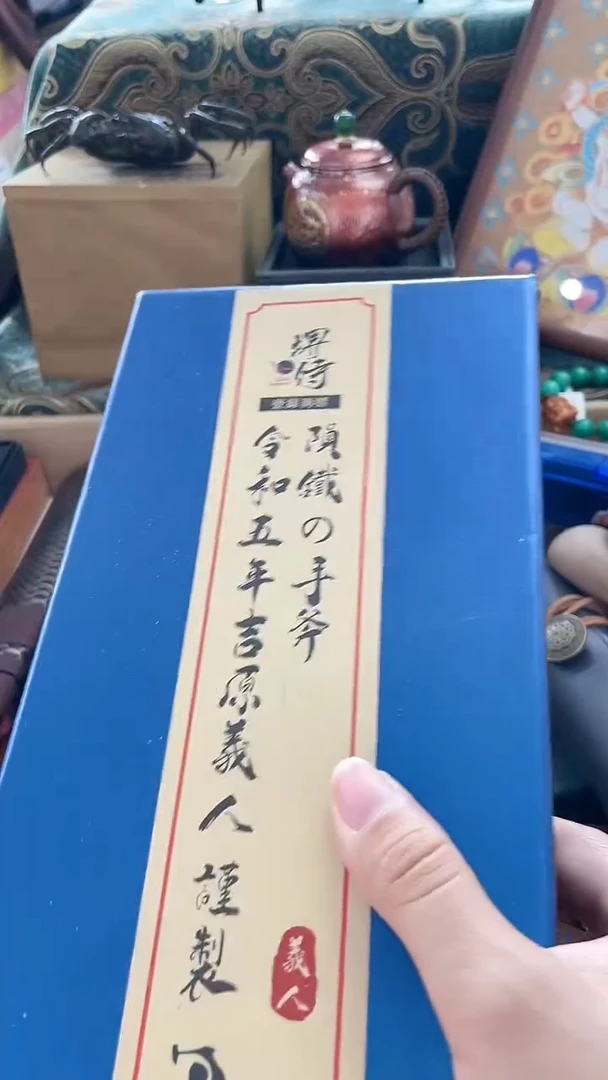 堺侍
隕鐵の手斧
令和五年吉原義人謹製
義人